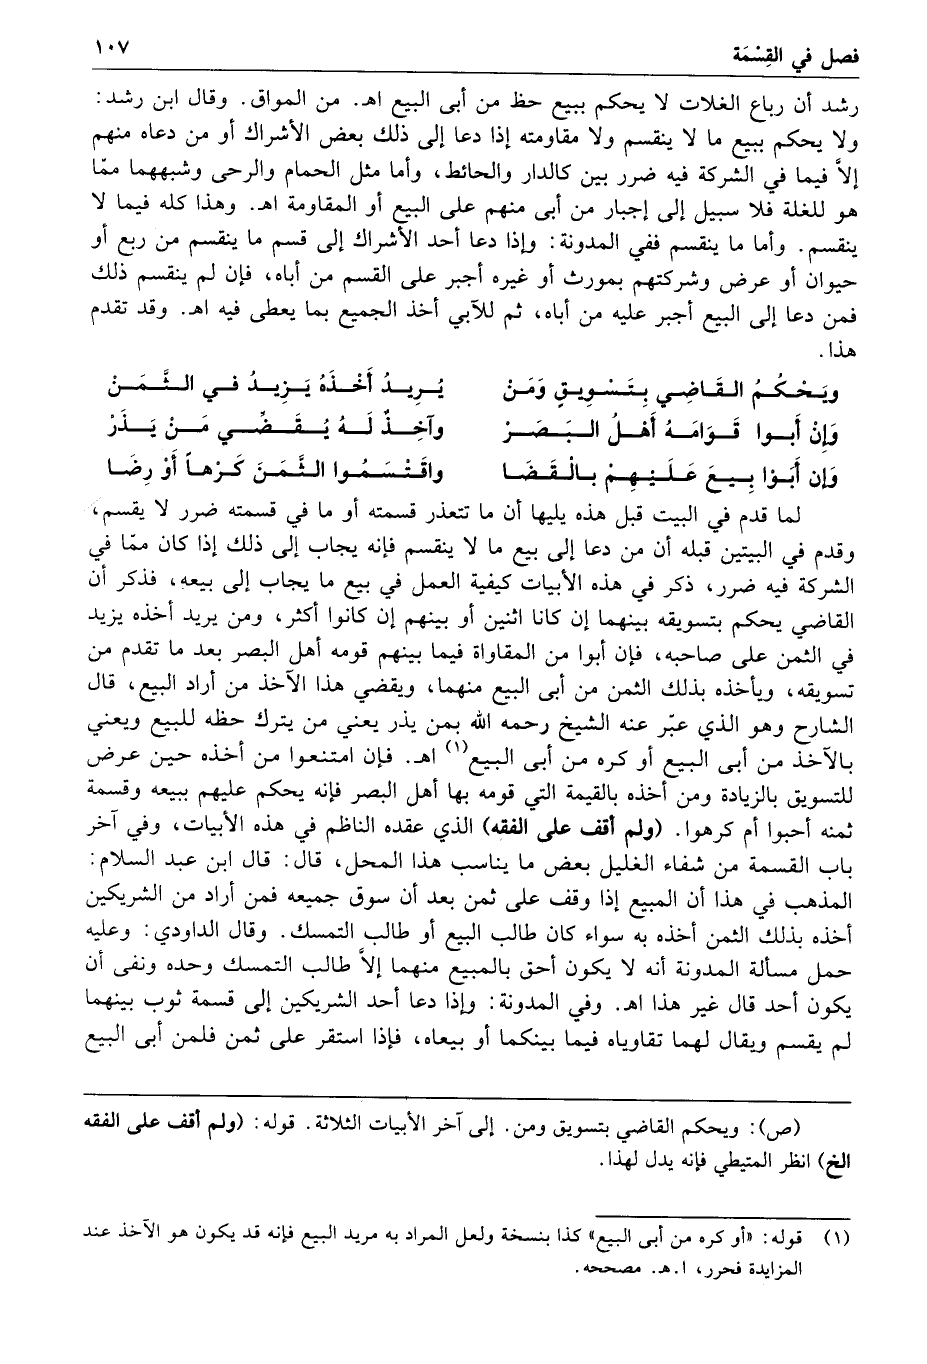 فصل في القِسْمَة ١٠٧
رشد أن رباع الغلات لا يحكم ببيع حظ من أبى البيع اهـ. من المواق. وقال ابن رشد:
ولا يحكم ببيع ما لا ينقسم ولا مقاومته إذا دعا إلى ذلك بعض الأشراك أو من دعاه منهم
إلاَّ فيما في الشركة فيه ضرر بين كالدار والحائط، وأما مثل الحمام والرحى وشبههما ممّا
هو للغلة فلا سبيل إلى إجبار من أبى منهم على البيع أو المقاومة اهـ. وهذا كله فيما لا
ينقسم. وأما ما ينقسم ففي المدونة: وإذا دعا أحد الأشراك إلى قسم ما ينقسم من ربع أو
حيوان أو عرض وشركتهم بمورث أو غيره أجبر على القسم من أباه، فإن لم ينقسم ذلك
فمن دعا إلى البيع أجبر عليه من أباه، ثم للآبي أخذ الجميع بما يعطى فيه اهـ. وقد تقدم
هذا.
وَيَحْكُمُ القَاضِي بِتَسْوِيقٍ وَمَنْ يُرِيدُ أَخْذَهُ يَزِيدُ فِي الثَّمَنْ
وَإِنْ أَبوا قَوَّمَهُ أَهْلُ البَصَرْ وآخِذٌ لَهُ يُقَضِّي مَنْ يَذَرْ
وَإِن أَبَوْا بِيعَ عَلَيْهِمْ بِالْقَضَا واقْتَسَمُوا الثَّمَنَ كَرْهاً أَوْ رِضَا
لما قدم في البيت قبل هذه يليها أن ما تتعذر قسمته أو ما في قسمته ضرر لا يقسم،
وقدم في البيتين قبله أن من دعا إلى بيع ما لا ينقسم فإنه يجاب إلى ذلك إذا كان ممّا في
الشركة فيه ضرر، ذكر في هذه الأبيات كيفية العمل في بيع ما يجاب إلى بيعه، فذكر أن
القاضي يحكم بتسويقه بينهما إن كانا اثنين أو بينهم إن كانوا أكثر، ومن يريد أخذه يزيد
في الثمن على صاحبه، فإن أبوا من المقاواة فيما بينهم قومه أهل البصر بعد ما تقدم من
تسويقه، ويأخذه بذلك الثمن من أبى البيع منهما، ويقضي هذا الآخذ من أراد البيع، قال
الشارح وهو الذي عبّر عنه الشيخ رحمه الله بمن يذر يعني من يترك حظه للبيع ويعني
بالآخذ من أبى البيع أو كره من أبى البيع(١) اهـ. فإن امتنعوا من أخذه حين عرض
للتسويق بالزيادة ومن أخذه بالقيمة التي قومه بها أهل البصر فإنه يحكم عليهم ببيعه وقسمة
ثمنه أحبوا أم كرهوا. (ولم أقف على الفقه) الذي عقده الناظم في هذه الأبيات، وفي آخر
باب القسمة من شفاء الغليل بعض ما يناسب هذا المحل، قال: قال ابن عبد السلام:
المذهب في هذا أن المبيع إذا وقف على ثمن بعد أن سوق جميعه فمن أراد من الشريكين
أخذه بذلك الثمن أخذه به سواء كان طالب البيع أو طالب التمسك. وقال الداودي: وعليه
حمل مسألة المدونة أنه لا يكون أحق بالمبيع منهما إلاَّ طالب التمسك وحده ونفى أن
يكون أحد قال غير هذا اهـ. وفي المدونة: وإذا دعا أحد الشريكين إلى قسمة ثوب بينهما
لم يقسم ويقال لهما تقاوياه فيما بينكما أو بيعاه، فإذا استقر على ثمن فلمن أبى البيع
(ص): ويحكم القاضي بتسويق ومن. إلى آخر الأبيات الثلاثة. قوله: (ولم أقف على الفقه
الخ) انظر المتيطي فإنه يدل لهذا.
(١) قوله: «أو كره من أبى البيع» كذا بنسخة ولعل المراد به مريد البيع فإنه قد يكون هو الآخذ عند
المزايدة فحرر، ا.هـ. مصححه.